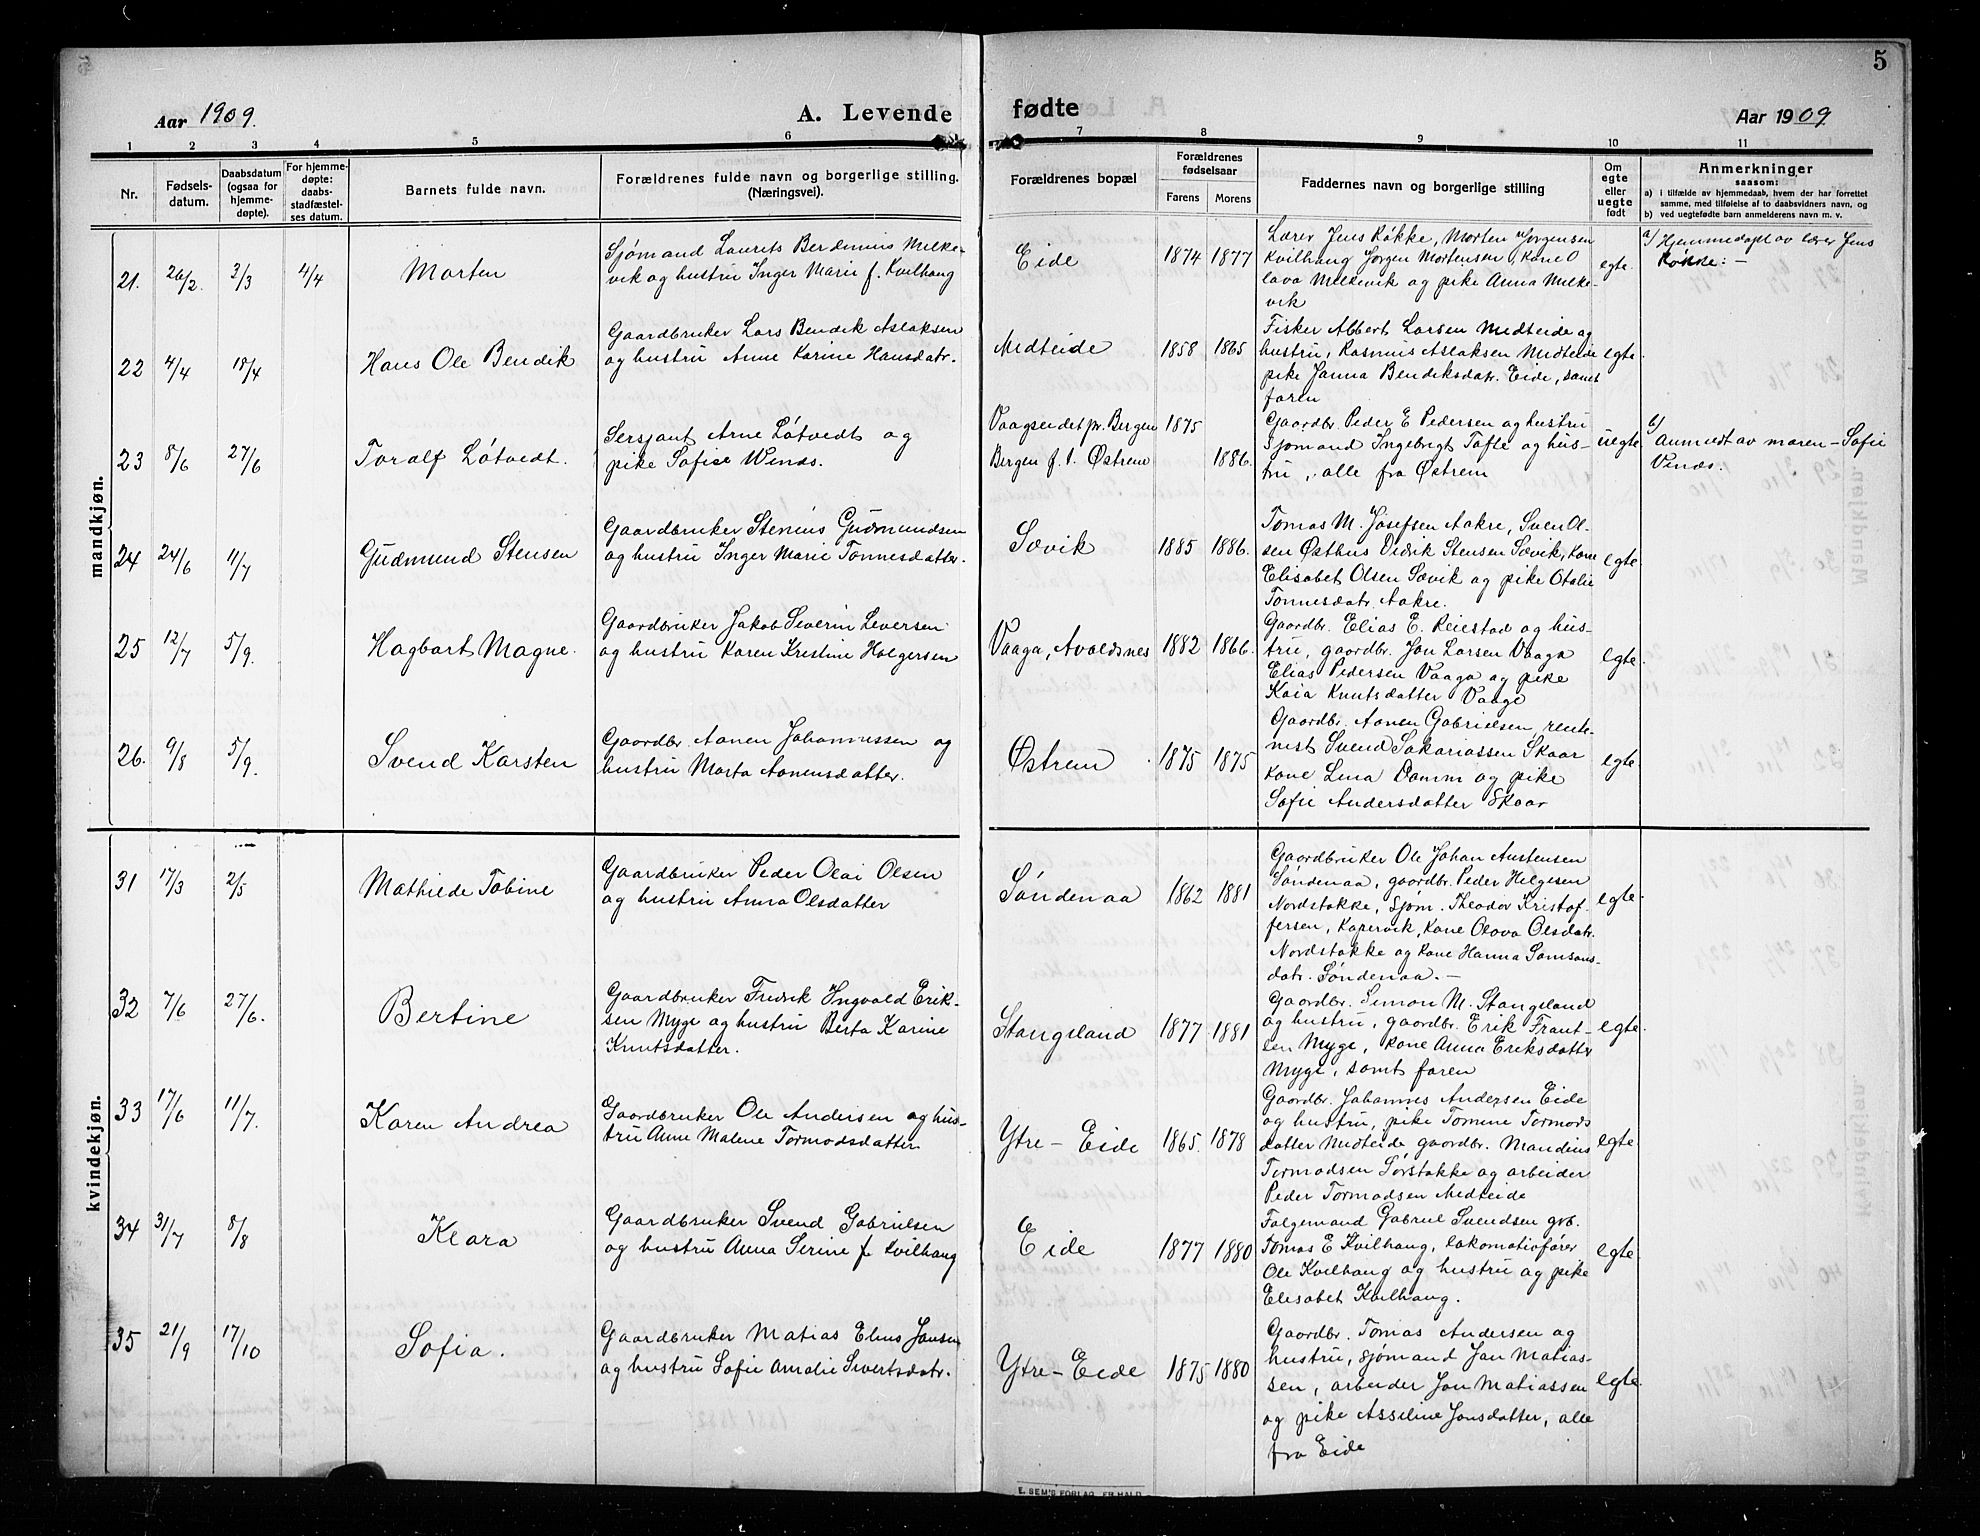 5
Aar 1909.
A. Levende
fødte
Aar 1909
1 2 3 4 5 6 7 8 9 10 11
Nr.
Fødsels-
datum.
Daabsdatum
(ogsaa for
hjemme-
døpte).
For hjemme-
døpte:
daabs-
stadfæstel-
ses datum.
Barnets fulde navn.
Forældrenes fulde navn og borgerlige stilling.
(Næringsvei).
Forældrenes bopæl
Forældrenes
fødselsaar
Farens
Morens
Faddernes navn og borgerlige stilling
Om
egte
eller
uegte
født
Anmerkninger
saasom:
a) i tilfælde av hjemmedaab, hvem der har forrettet
samme, med tilføielse af to daabsvidners navn, og
b) ved uegtefødte barn anmelderens navn m. v.
mandkjøn.
21. 26/2. 3/3 4/4
Morten
Sjømand Laurits Berdinius Milke-
vik og hustru Inger Marie f. Kvilhaug
Eide
1874 1877
Lærer Jens Røkke, Morten Jørgensen
Kvilhaug Jørgen Mortensen, Kone O
lava Milkevik og pike Anna Milke-
vik
egte.
a/ Hjemmedøpt av lærer Jens
Røkke: –
22 4/4 18/4
Hans Ole Bendik
Gaardbruker Lars Bendik Aslaksen
og hustru Anne Karine Hansdatr.
Medteide
1858 1865
Fisker Albert Larsen Medteide og
hustru, Rasmus Aslaksen Medteide
pike Janna Bendiksdatr. Eide, samt
faren
egte
23 8/6 27/6
Toralf Løtvedt.
Sersjant Arne Løtvedt og
pike Sofie Winds.
Vaagseidet pr. Bergen 1875
Bergen f. t. Østrem 1886.
Gaardbr. Peder E Pedersen og hustru
Sjømand Ingebrigt Tofte og hus-
tru, alle fra Østrem
uegte
b/
Anmeldt av moren – Sofie
Vinds.
24 24/6 11/7
Gudmund Stensen
Gaardbruker Stenius Gudmundsen
og hustru Inger Marie Tønnesdatter.
Sævik
1885 1886.
Tomas M. Josefsen Aakre, Sven Ol-
sen Østhus Didrik Stensen Sævik, Kone
Elisabet Olsen Sævik og pike Otalie
Tønnesdatr. Aakre.
egte.
25 12/7 5/9.
Hagbart Magne.
Gaardbruker Jakob Severin Seversen
og hustru Karen Kristine Holgersen
Vaaga, Avaldsnes
1882 1866.
Gaardbr. Elias E. Reiestad og hus-
tru, gaardbr. Jan Larsen Vaaga
Elias Pedersen Vaaga og pike
Kaia Knutsdatter Vaage
egte.
26. 9/8 5/9.
Svend Karsten
Gaardbr. Aanen Johannessen og
hustru Marta Aanensdatter.
Østrem
1875 1875
Gaardbr. Aanen Gabrielsen, rente-
nist Svend Sakariassen Skaar
Kone Lina Damm og pike
Sofie Andersdatter Skaar
egte.
kvindekjøn.
31 17/3 2/5
Mathilde Tobine
Gaardbruker Peder Olai Olsen
og hustru Anna Olsdatter
Søndenaa
1862 1881
Gaardbruker Ole Johan Austensen
Søndenaa, gaardbr. Peder Helgesen
Nordstokke, Sjøm. Theodor Kristof-
fersen, Kopervik, Kone Olava Olsdatr.
Nordstokke og Kone Hanna Samsons-
datr. Søndenaa. –
egte.
32 7/6 27/6.
Bertine
Gaardbruker Fredrik Ingvald Erik-
sen Myge og hustru Berta Karine
Knutsdatter.
Stangeland
1877 1881
Gaardbr. Simon M. Stangeland
og hustru, gaardbr. Erik Frant-
sen Myge, Kone Anna Eriksdatter
Myge, samt faren
egte.
33 17/6 11/7.
Karen Andrea
Gaardbruker Ole Andersen og hus-
tru Anne Malene Tormodsdatter.
Ytre-Eide
1865. 1878
Gaardbr. Johannes Andersen Eide
og hustru, pike Tomine Tormods
datter Medteide gaardbr. Mandius
Tormodsen Sørstokke og arbeider
Peder Tormodsen Medteide
egte.
34 31/7 8/8
Klara
Gaardbruker Svend Gabrielsen
og hustru Anna Serine f Kvilhaug
Eide
1877 1880
Følgemand Gabriel Svendsen grb.
Tomas E Kvilhaug, lokomotivfører
Ole Kvilhaug og hustru og pike
Elisabet Kvilhaug.
egte.
35 21/9 17/10
Sofia.
Gaardbruker Matias Elius Jansen
og hustru Sofie Amalie Sivertsdatr.
Ytre-Eide
1875 1880
Gaardbr. Tomas Andersen og
hustru, Sjømand Jan Matias-
sen, arbeider Jon Matiassen
og pike Asseline Jonsdatter, alle
fra Eide
egte.
E. SEM'S FORLAG, FR.HALD